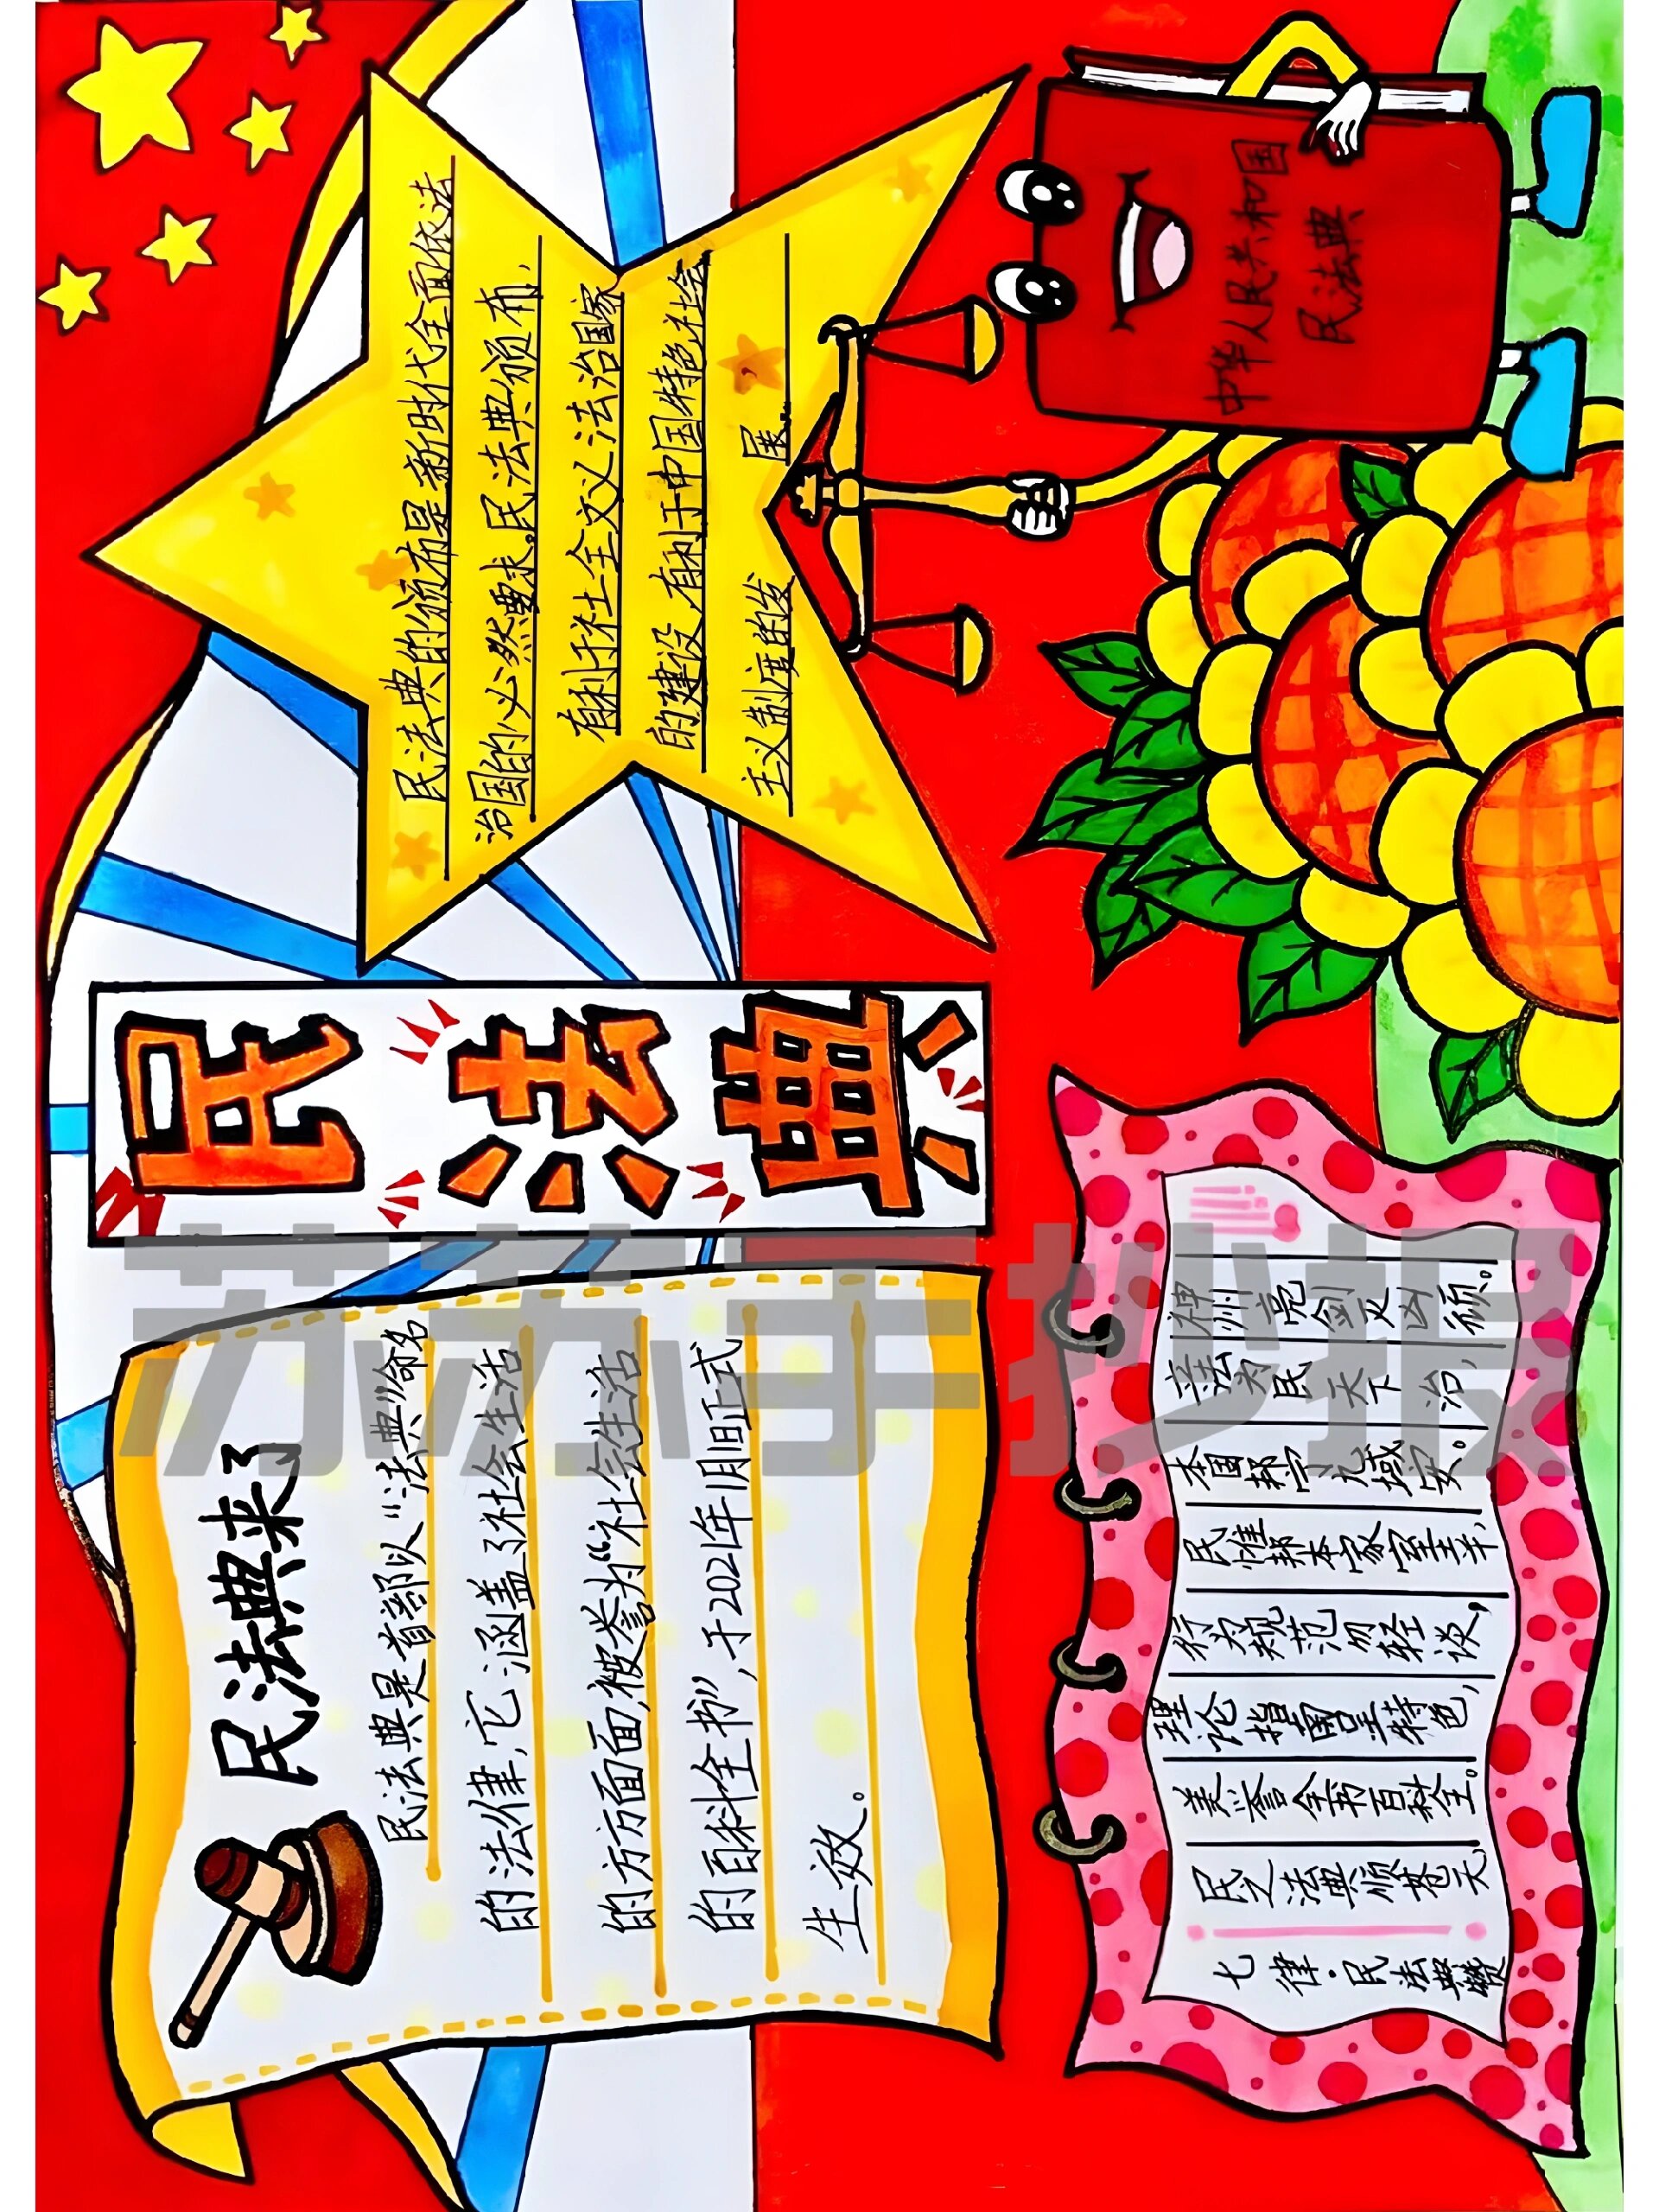 民法典来了
民法典是首部以“法典”命名
的法律,它涵盖了社会生活
的方方面面,被誉为“社会生活
的百科全书”,于2021年1月1日正式
生效。
民法典
民法典的颁布是新时代全面依法
治国的必然要求。民法典颁布,
有利于社全文义法治国家
的建设,有利于中国特色社会
主义制度的发 展。
七律·民法典赞
民之法典顺苍天,
美誉全书百科全。
理论指南呈特色,
行为规范勿轻谈,
民惟邦本家室
本固邦宁九域安。
立法为民天下治,
神州亮剑处凶顽。
中华人民共和国
民法典
苏苏手抄报